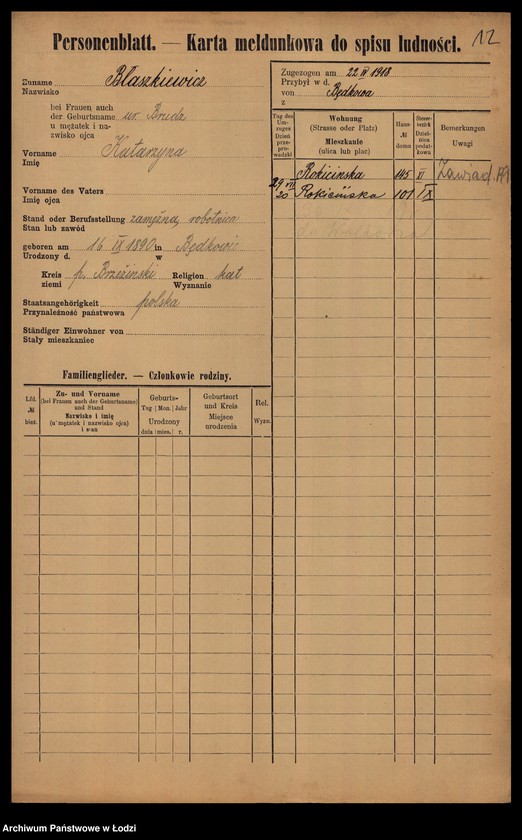 Personenblatt. — Karta meldunkowa do spisu ludności. 12
Zuname
Nazwisko Błaszkiewicz
bei Frauen auch
der Geburtsname ur. Bruda
u mężatek i na-
zwisko ojca
Vorname Katarzyna
Imię
Vorname des Vaters
Imię ojca
Stand oder Berufsstellung zamężna, robotnica
Stan lub zawód
geboren am 16 IX 1890 in Będkowie
Urodzony d. w
Kreis p. Brzeziński Religion kat
ziemi Wyznanie
Staatsangehörigkeit polska
Przynależność państwowa
Ständiger Einwohner von
Stały mieszkaniec
Zugezogen am 22 IV 1918
Przybył w d.
von Będkowa
z
Tag des Um-zuges Dzień prze-prowadzki
Wohnung
(Strasse oder Platz)
Mieszkanie
(ulica lub plac)
Haus- № domu
Steuer-bezirk Dziel-nica podat-kowa
Bemerkungen
Uwagi
Rokicinska 145 II Zawiad.
29 VII 20 Rokicińska 101 IX
Familienglieder. — Członkowie rodziny.
Lfd. № bież.
Zu- und Vorname
(bei Frauen auch der Geburtsname)
und Stand
Nazwisko i imię
(u mężatek i nazwisko ojca)
i stan
Geburts-
Tag Mon. Jahr
Urodzony
dnia mies. r.
Geburtsort
und Kreis
Miejsce
urodzenia
Rel.
Wyzn.
Archiwum Państwowe w Łodzi